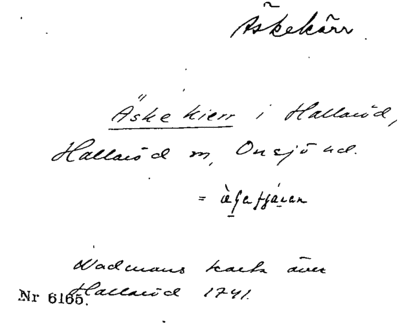 Äskekärr
Äske kierr i Hallaröd,
Hallaröd sn, Onsjö hd.
=
Wadmans karta över
Hallaröd 1741.
Nr 6165.